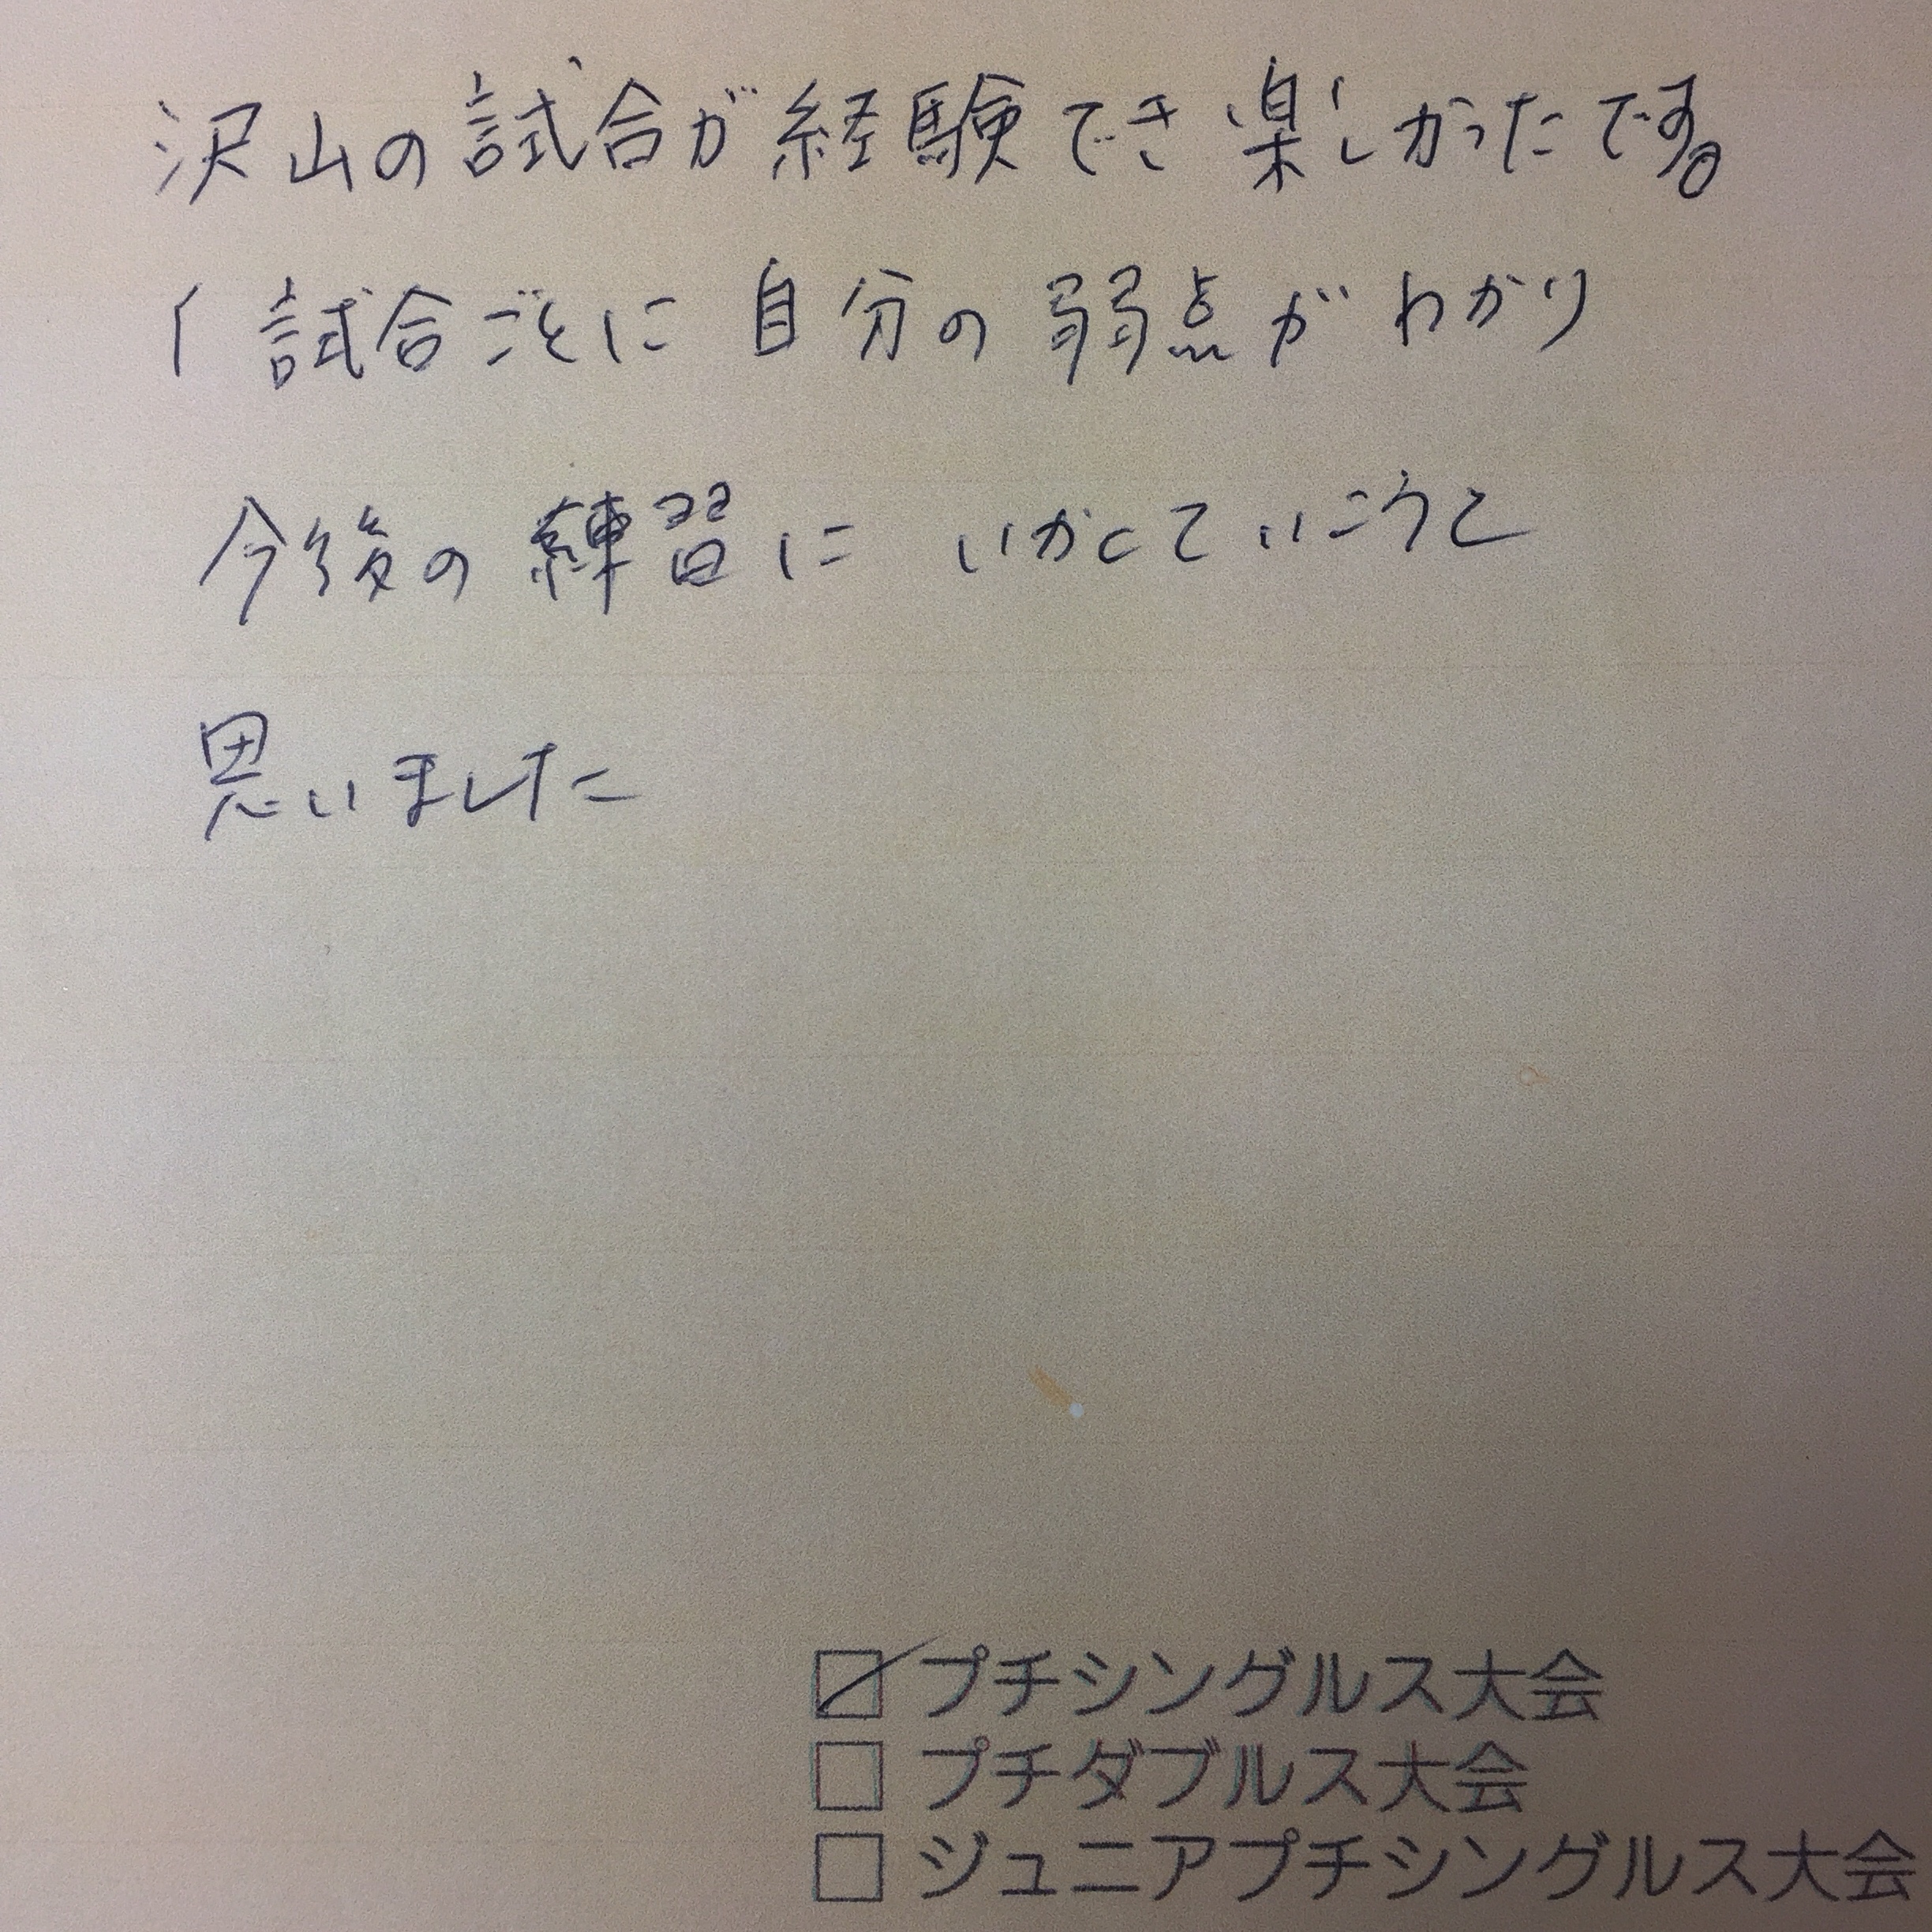 沢山の試合が経験でき楽しかったです。
1試合ごとに自分の弱点がわかり
今後の練習にいかしていこうと
思いました
☑プチシングルス大会
□プチダブルス大会
□ジュニアプチシングルス大会